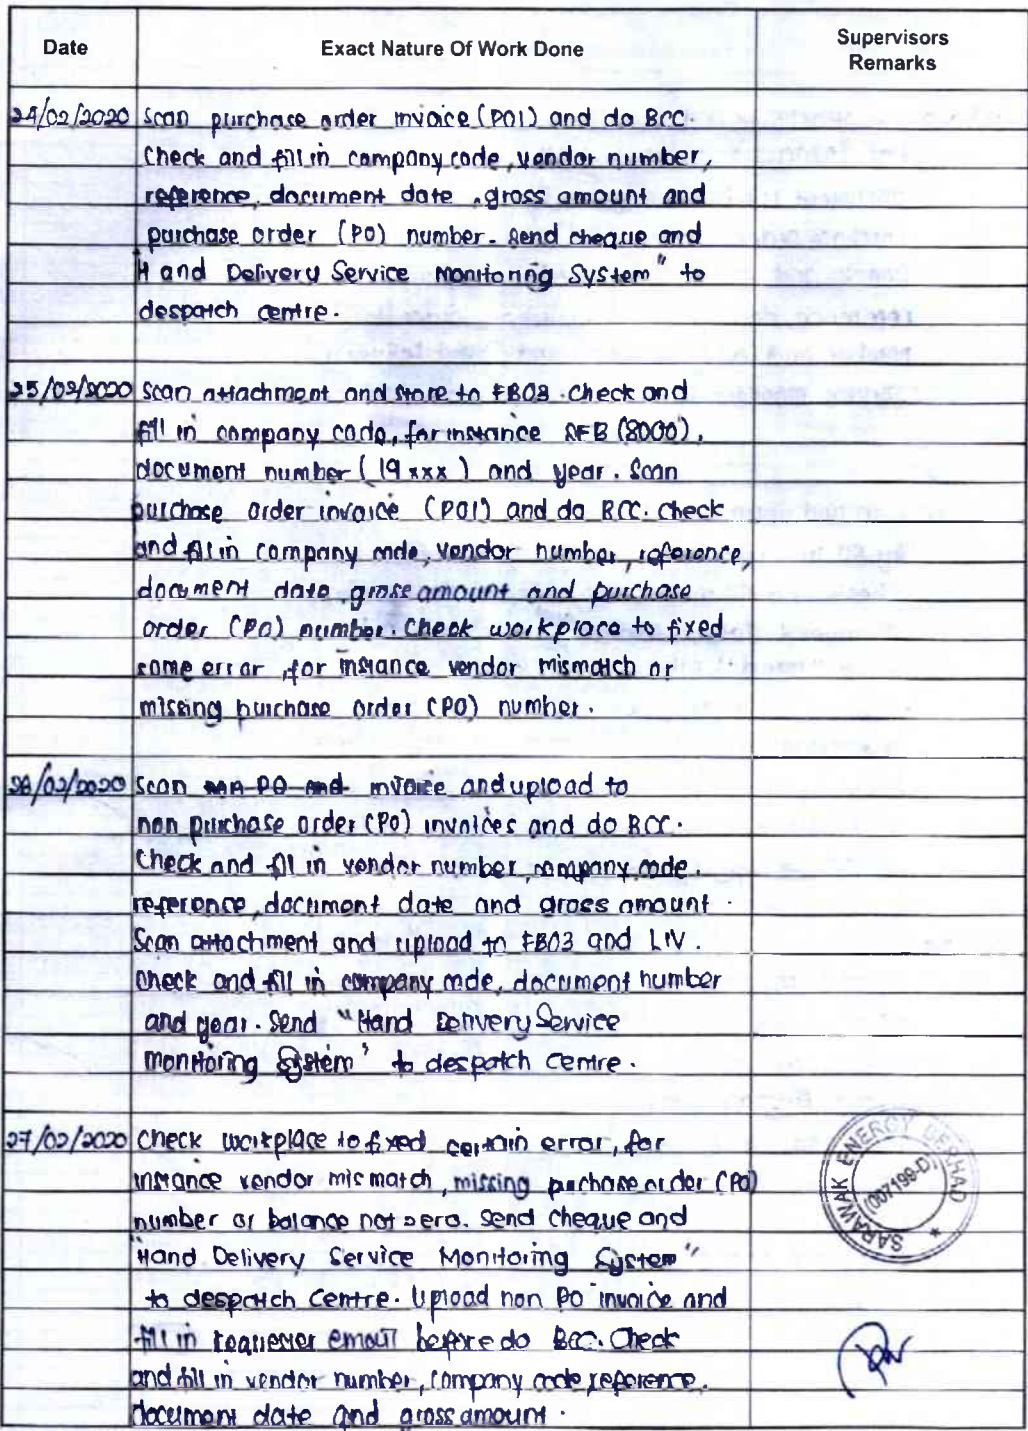 Date Exact Nature Of Work Done Supervisors Remarks
24/02/2020 Scan purchase order invoice (POI) and do BCC.
Check and fill in company code, vendor number,
reference, document date, gross amount and
purchase order (PO) number. Send cheque and
"Hand Delivery Service Monitoring System" to
despatch centre.
25/02/2020 Scan attachment and store to FB03. Check and
fill in company code, for instance SEB (8000),
document number (19xxx) and year. Scan
purchase order invoice (POI) and do BCC. Check
and fill in company code, vendor number, reference,
document date, gross amount and purchase
order (PO) number. Check workplace to fixed
some error, for instance vendor mismatch or
missing purchase order (PO) number.
26/02/2020 Scan invoice and upload to
non purchase order (PO) invoices and do BCC.
Check and fill in vendor number, company code,
reference, document date and gross amount.
Scan attachment and upload to FB03 and LIV.
Check and fill in company code, document number
and year. Send "Hand Delivery Service
monitoring System" to despatch centre.
27/02/2020 Check workplace to fixed certain error, for
instance vendor mismatch, missing purchase order (PO)
number or balance not zero. Send cheque and
"Hand Delivery Service Monitoring System"
to despatch Centre. Upload non PO invoice and
fill in requester email before do BCC. Check
and fill in vendor number, company code, reference,
document date and gross amount.
SARAWAK ENERGY BERHAD
(007199-D)